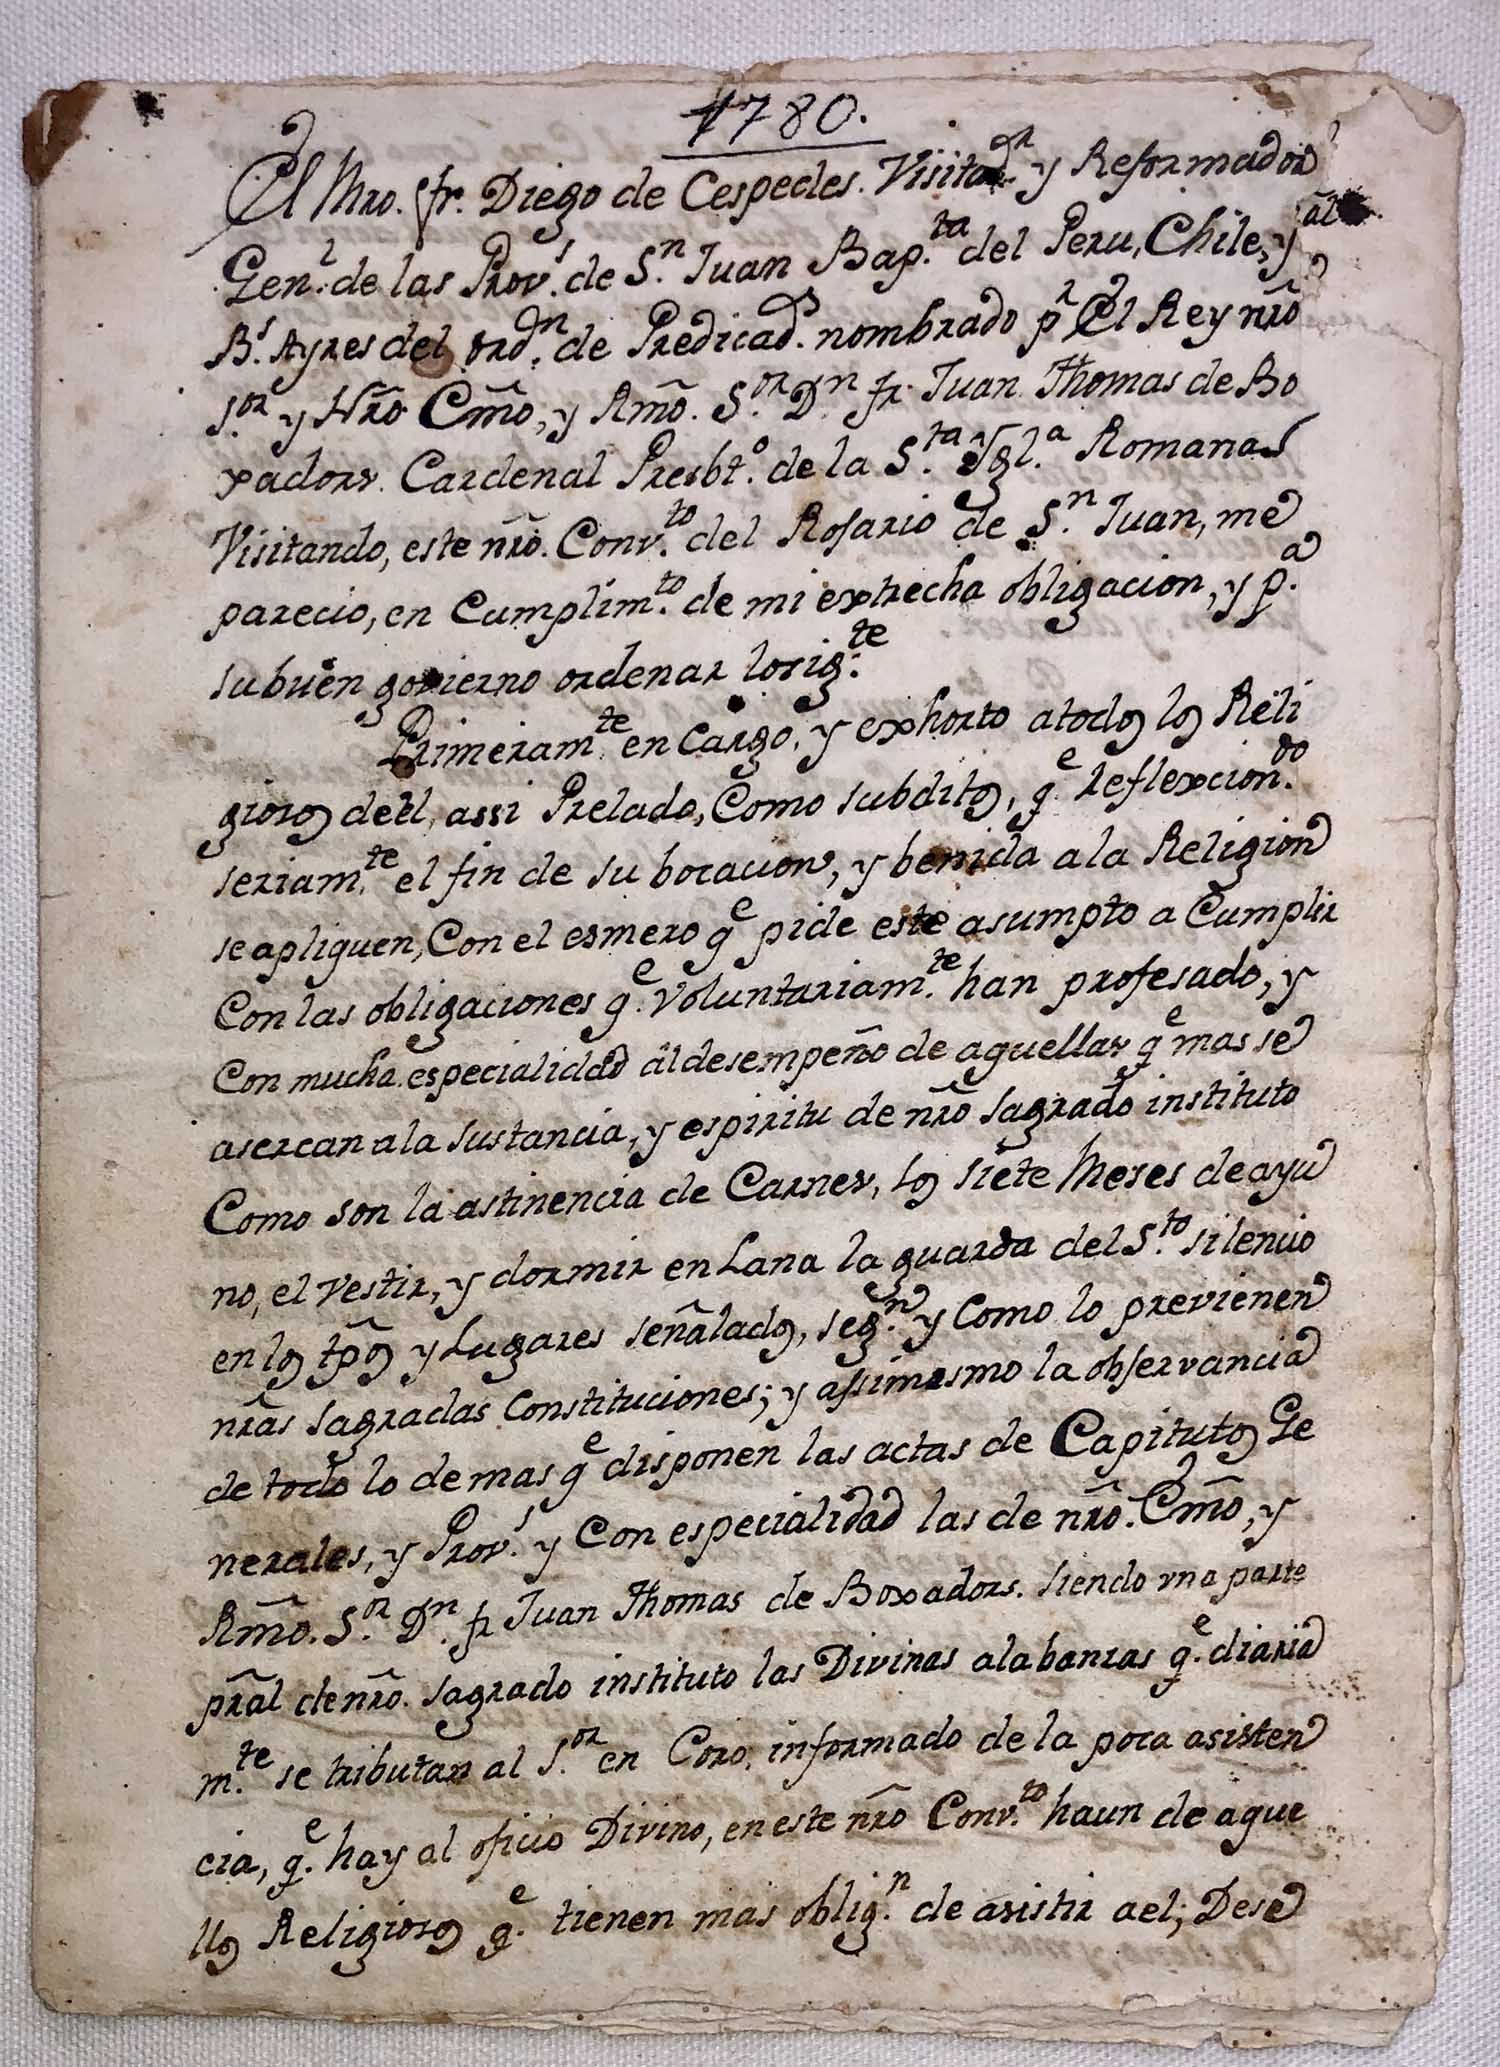 1780.
El Mro. fr. Diego de Cespedes. Visitador y Reformador
Gen.l de las Prov.s de S.n Juan Bap.ta del Peru, Chile, y
B.s Ayres del ord.n de Predicad.s nombrado p.r El Rey nr̃o
S.or y Nr̃o Cm̃o, y Rm̃o. S.or D.n fr. Juan Thomas de Bo
xadors. Cardenal Presbt.o de la S.ta Ygl.a Romana
Visitando, este nr̃o. Conv.to del Rosario de S.n Juan, me
parecio, en Cumplim.to de mi extrecha obligacion, y p.a
su buen govierno ordenar lo sig.te
Primeram.te en cargo, y exhorto a todos los Reli
giosos de el, assi Prelado, Como subditos, q.e reflexcion.do
seriam.te el fin de su bocacion, y benida a la Religion
se apliquen, Con el esmero q.e pide este asumpto a Cumplir
Con las obligaciones q.e voluntariam.te han profesado, y
Con mucha especialidad al desempeño de aquellas q.e mas se
asercan a la sustancia, y espiritu de nr̃o sagrado instituto
Como son la astinencia de Carnes, los siete Meses de ayu
no, el vestir, y dormir en Lana la guarda del S.to silencio
en los tp̃os y Lugares señalados, seg.n y Como lo previenen
nr̃as sagradas Constituciones; y assimesmo la observancia
de todo lo de mas q.e disponen las actas de Capitulos Ge
nerales, y Prov.s y Con especialidad las de nr̃o. Cm̃o, y
Rm̃o. S.or D.n fr Juan Thomas de Boxadors. siendo una parte
pr̃al de nr̃o. sagrado instituto las Divinas alabanzas q.e diaria
m.te se tributan al S.or en Coro, informado de la poca asisten
cia, q.e hay al oficio Divino, en este nr̃o Conv.to haun de aque
llos Religiosos q.e tienen mas oblig.n de asistir ael; Dese